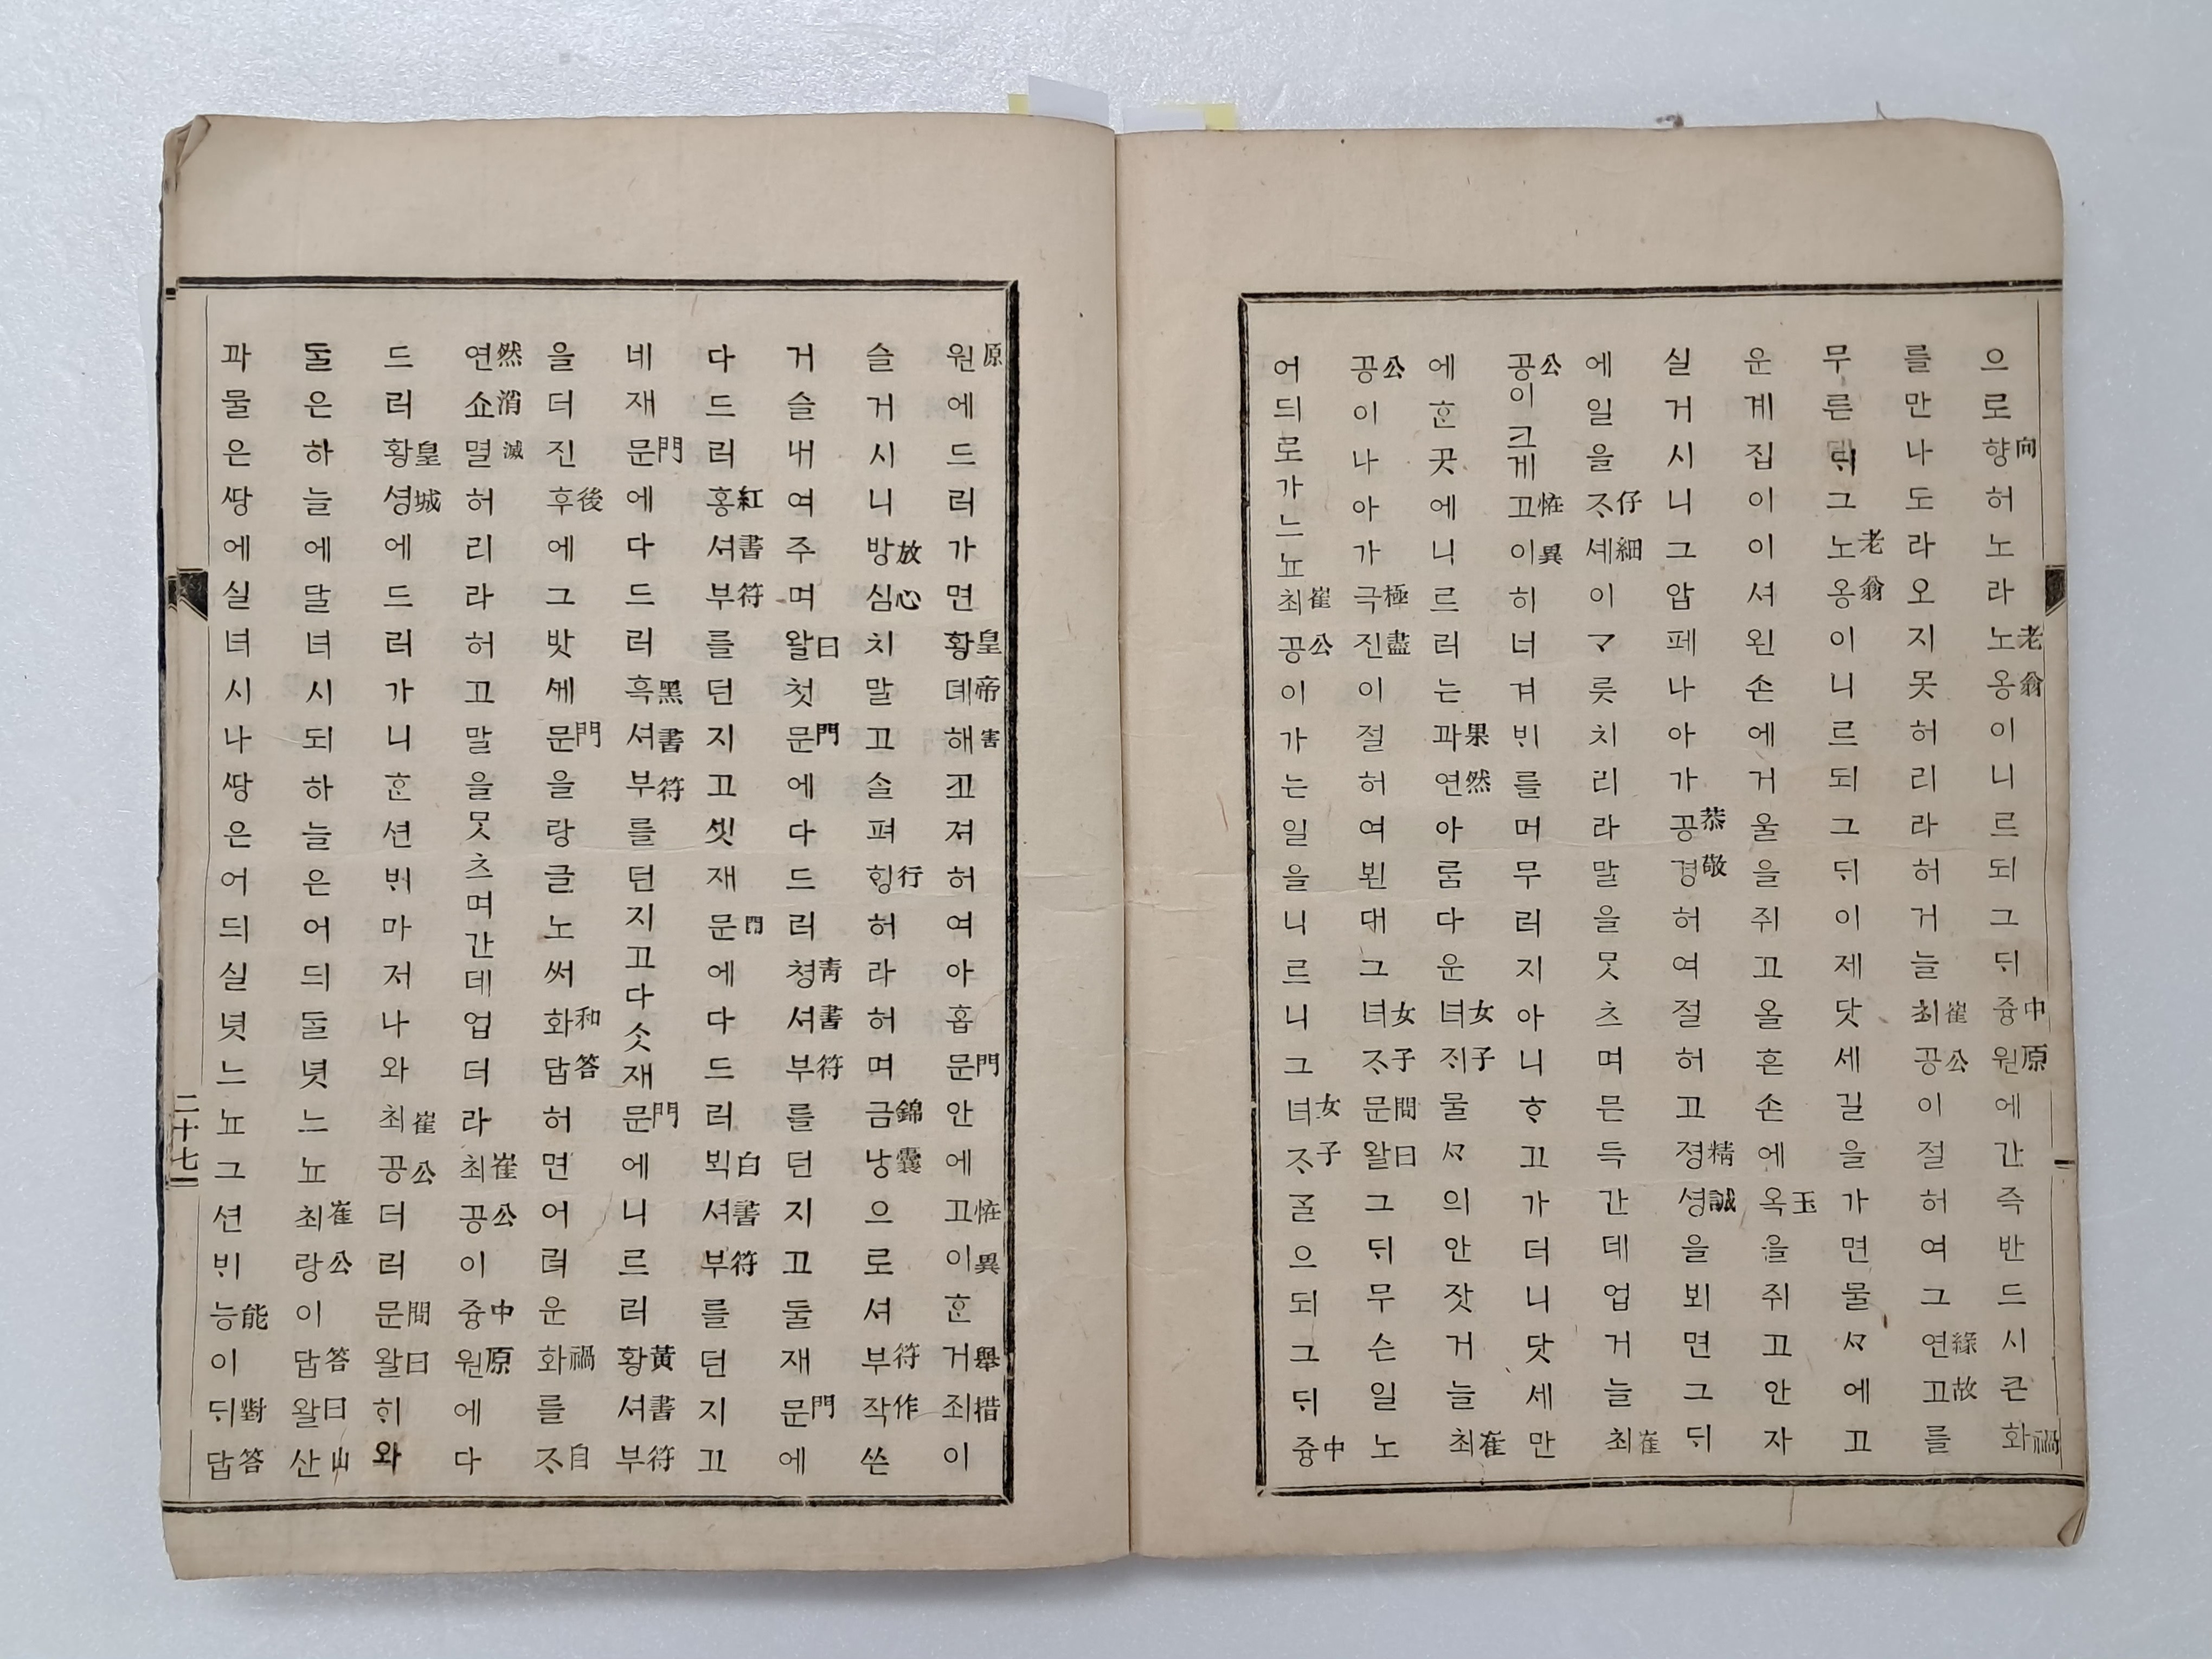 으로향向허노라노옹老翁이니르되그ᄃᆡ즁원中原에간즉반드시큰화禍
를만나도라오지못허리라허거늘최공崔公이절허여그연고緣故를
무른ᄃᆡ그노옹老翁이니르되그ᄃᆡ이제닷세길을가면물ᄭᆞ에고
운계집이이셔왼손에거울을쥐고올흔손에옥玉을쥐고안자
실거시니그압페나아가공경恭敬허여절허고졍셩精誠을뵈면그ᄃᆡ
에일을ᄌᆞ셰仔細이ᄀᆞ릇치리라말을ᄆᆞᆺ츠며믄득간데업거늘최崔
공公이크게고이恠異히너겨ᄇᆡ를머무러지아니ᄒᆞ고가더니닷세만
에ᄒᆞᆫ곳에니르러는과연果然아룸다운녀ᄌᆡ女子물ᄭᆞ의안잣거늘최崔
공公이나아가극진極盡이절허여뵌대그녀ᄌᆞ女子문왈問曰그ᄃᆡ무슨일노
어듸로가느뇨최공崔公이가는일을니르니그녀ᄌᆞ女子ᄀᆞᆯ으되그ᄃᆡ즁中
원原에드러가면황뎨皇帝해害고져허여아홉문門안에고이恠異ᄒᆞᆫ거죄擧措이
슬거시니방심放心치말고솔펴ᄒᆡᆼ行허라허며금낭錦囊으로셔부작符作쓴
거슬내여주며왈曰첫문門에다드러쳥셔부靑書符를던지고둘재문門에
다드러홍셔부紅書符를던지고셋재문門에다드러ᄇᆡᆨ셔부白書符를던지고
네재문門에다드러흑셔부黑書符를던지고다ᄉᆞᆺ재문門에니르러황셔부黃書符
을더진후後에그밧ᄭᅦ문門을랑글노써화답和答허면어려운화禍를ᄌᆞ自
연쇼멸然消滅허리라허고말을ᄆᆞᆺ츠며간데업더라최공崔公이즁원中原에다
드러황셩皇城에드러가니ᄒᆞᆫ션ᄇᆡ마저나와최공崔公더러문왈問曰ᄒᆡ와
ᄃᆞᆯ은하늘에달녀시되하늘은어듸ᄃᆞᆯ녓느뇨최랑崔公이답왈答曰산山
과물은ᄯᅡᆼ에실녀시나ᄯᅡᆼ은어듸실녓느뇨그션ᄇᆡ능能이ᄃᆡ답對答
二十七